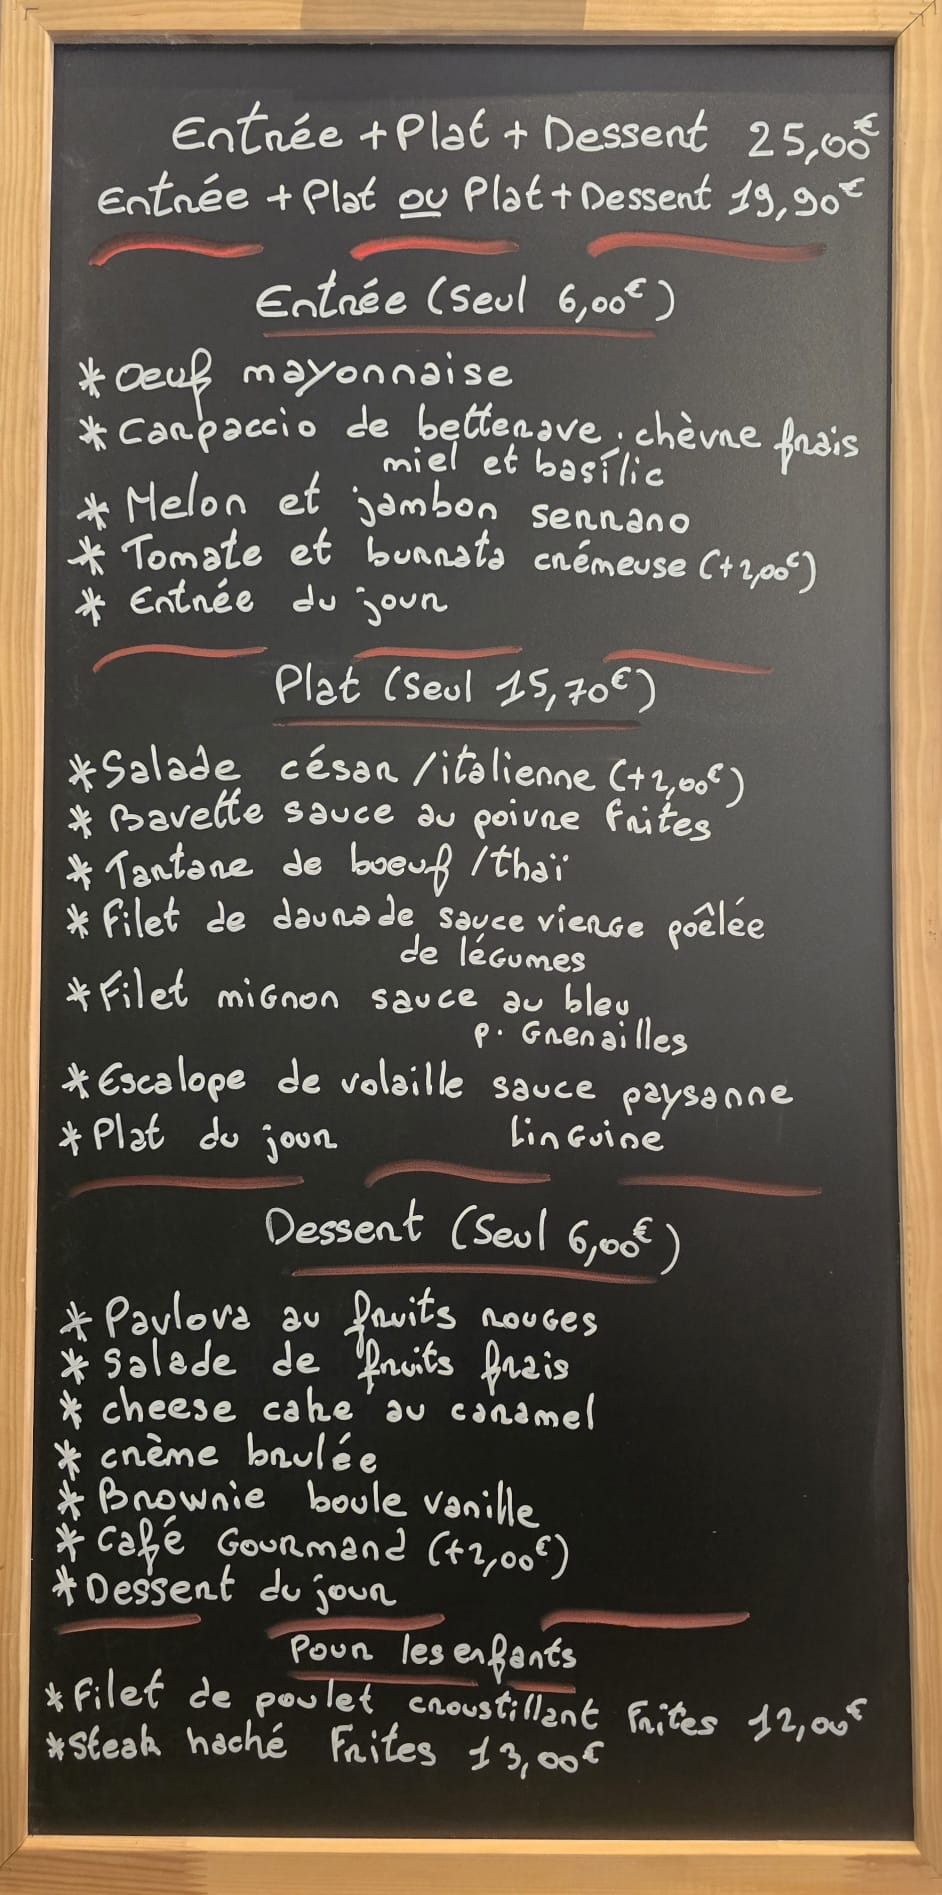 Entrée + Plat + Dessert 25,00€
Entrée + Plat ou Plat + Dessert 19,90€
Entrée (Seul 6,00€)
* Oeuf mayonnaise
* Carpaccio de betterave. chèvre frais
miel et basilic
* Melon et jambon serrano
* Tomate et burrata crémeuse (+2,00€)
* Entrée du jour
Plat (Seul 15,70€)
* Salade césar /italienne (+2,00€)
* Bavette sauce au poivre Frites
* Tartare de boeuf /thaï
* Filet de daurade sauce vierge poêlée
de légumes
* Filet mignon sauce au bleu
P. Grenailles
* Escalope de volaille sauce paysanne
Linguine
* Plat du jour
Dessert (Seul 6,00€)
* Pavlova au fruits rouges
* Salade de fruits frais
* cheese cake au caramel
* crème brulée
* Brownie boule vanille
* Café Gourmand (+2,00€)
* Dessert du jour
Pour les enfants
* Filet de poulet croustillant Frites 12,00€
* Steak haché Frites 13,00€